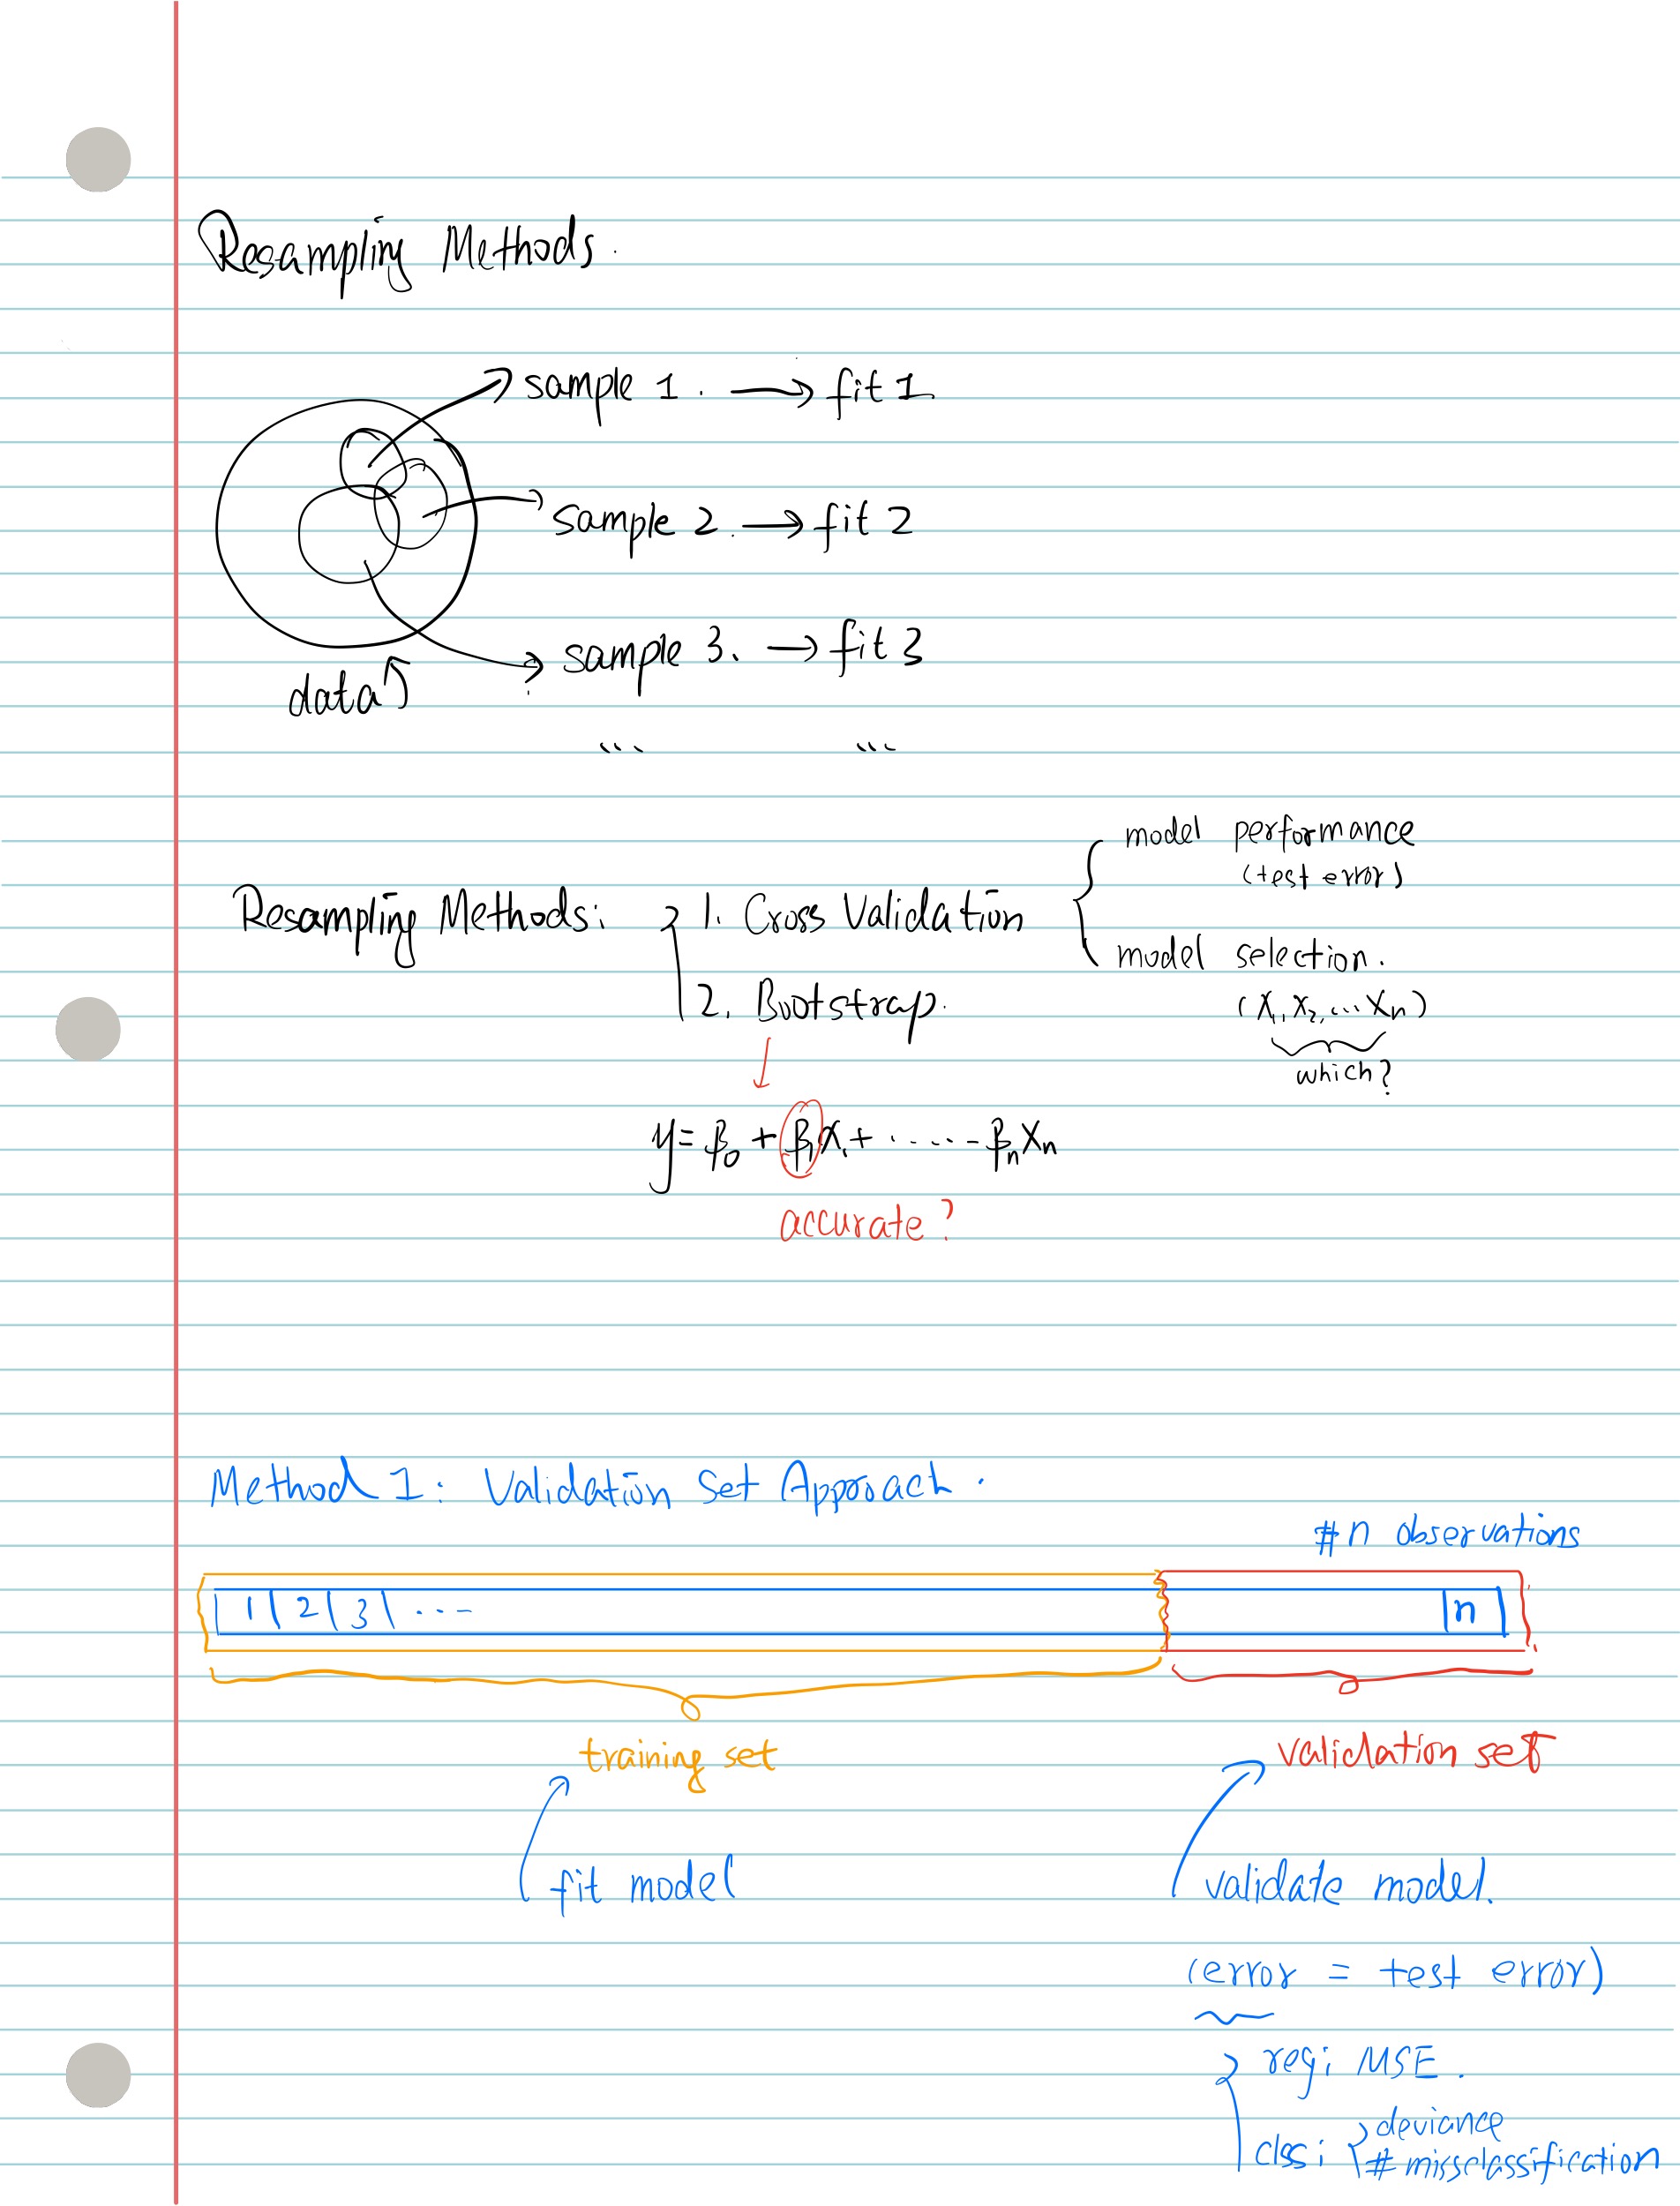 Resampling Methods.
sample 1. → fit 1
sample 2. → fit 2
sample 3. → fit 3
data
... ...
model performance
(test error)
Resampling Methods: 1. Cross Validation
model selection.
2. Bootstrap.
(X₁, X₂, ... Xn)
which?
y = β₀ + β₁X₁ + ...... βnXn
accurate?
Method 1: Validation Set Approach.
#n observations
1 | 2 | 3 | ... | n
training set
validation set
fit model
validate model.
(error = test error)
reg: MSE.
deviance
clss:
# missclassification